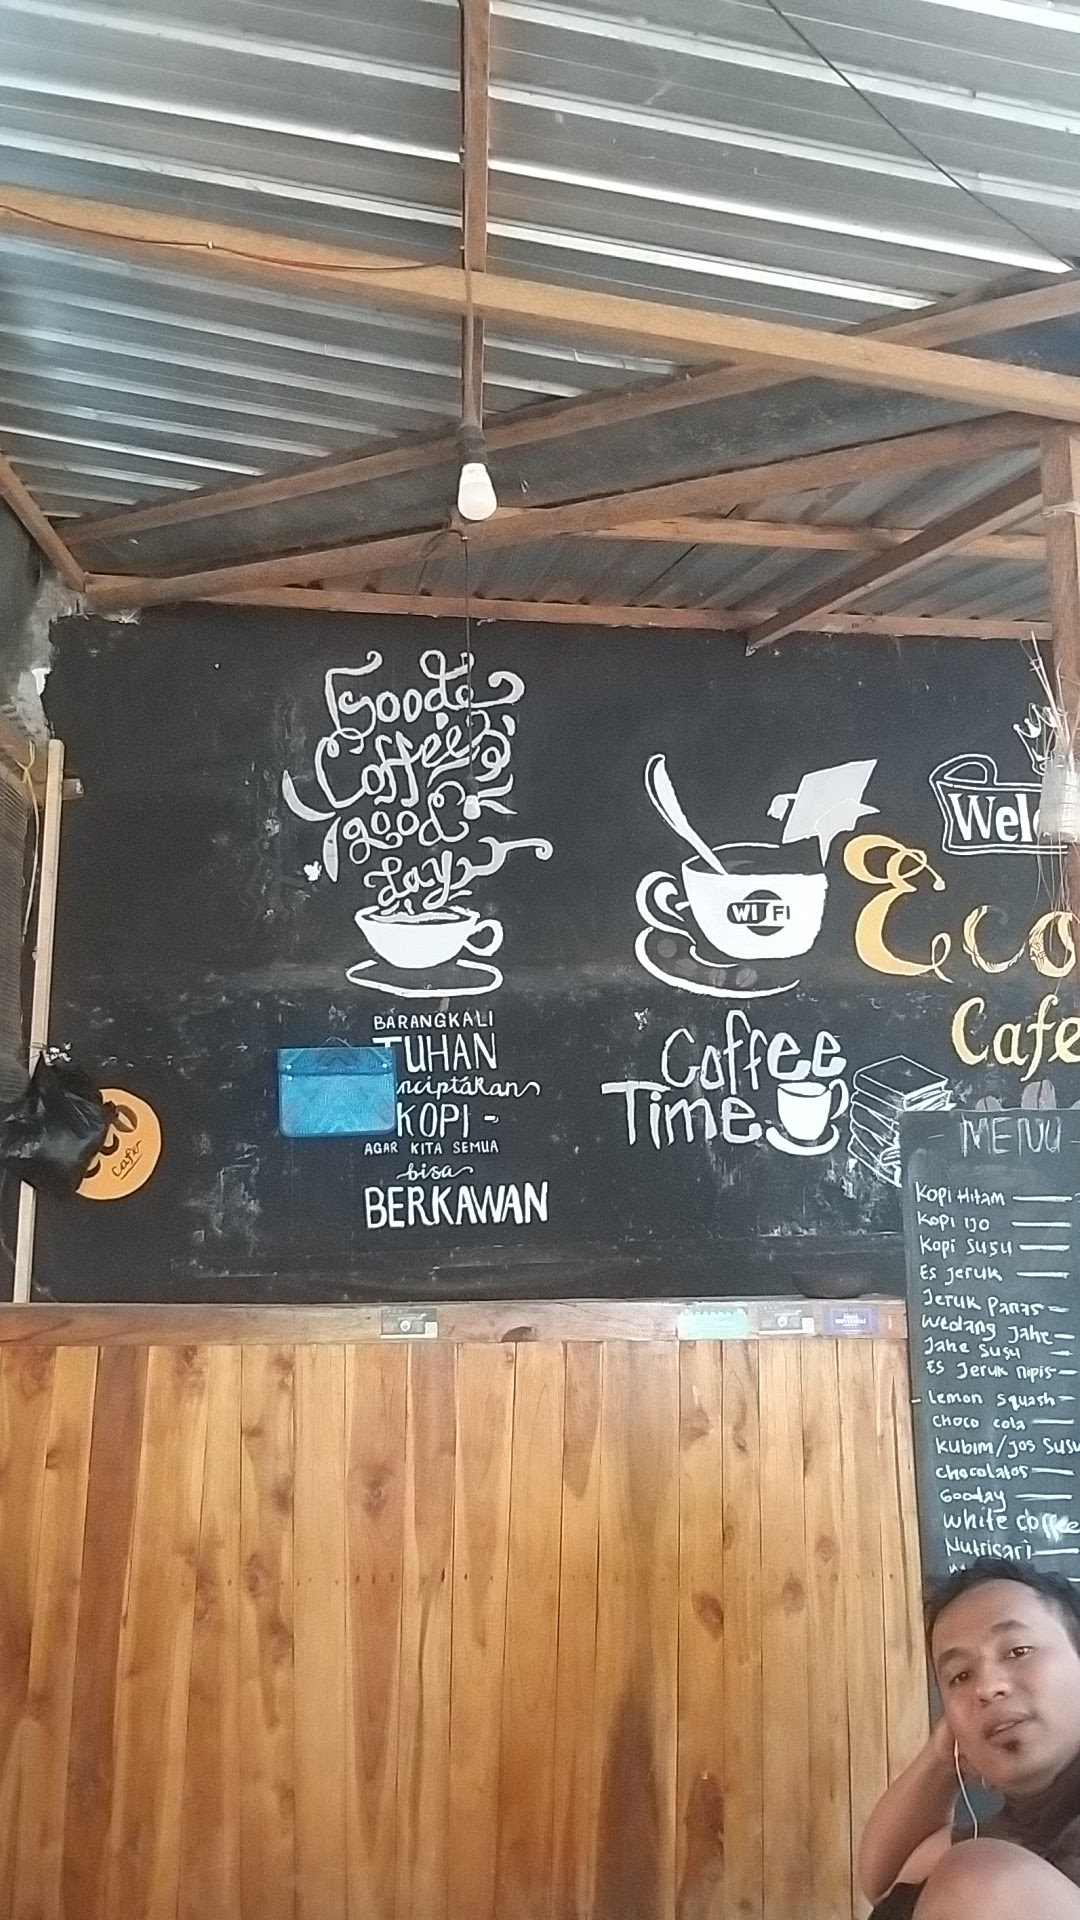 Good
Coffee
good
day
BARANGKALI
TUHAN
nciptakan
KOPI -
AGAR KITA SEMUA
bisa
BERKAWAN
WIFI
Coffee
Time
Wel
Eco
Cafe
eco
cafe
- MENU -
Kopi Hitam
Kopi IJO
Kopi SUSU
ES Jeruk
Jeruk Panas
Wedang Jahe
Jahe Susu
ES Jeruk nipis
- Lemon Squash
Choco cola
Kubim/Jos Susu
Chocolatos
Gooday
White coffee
Nutrisari